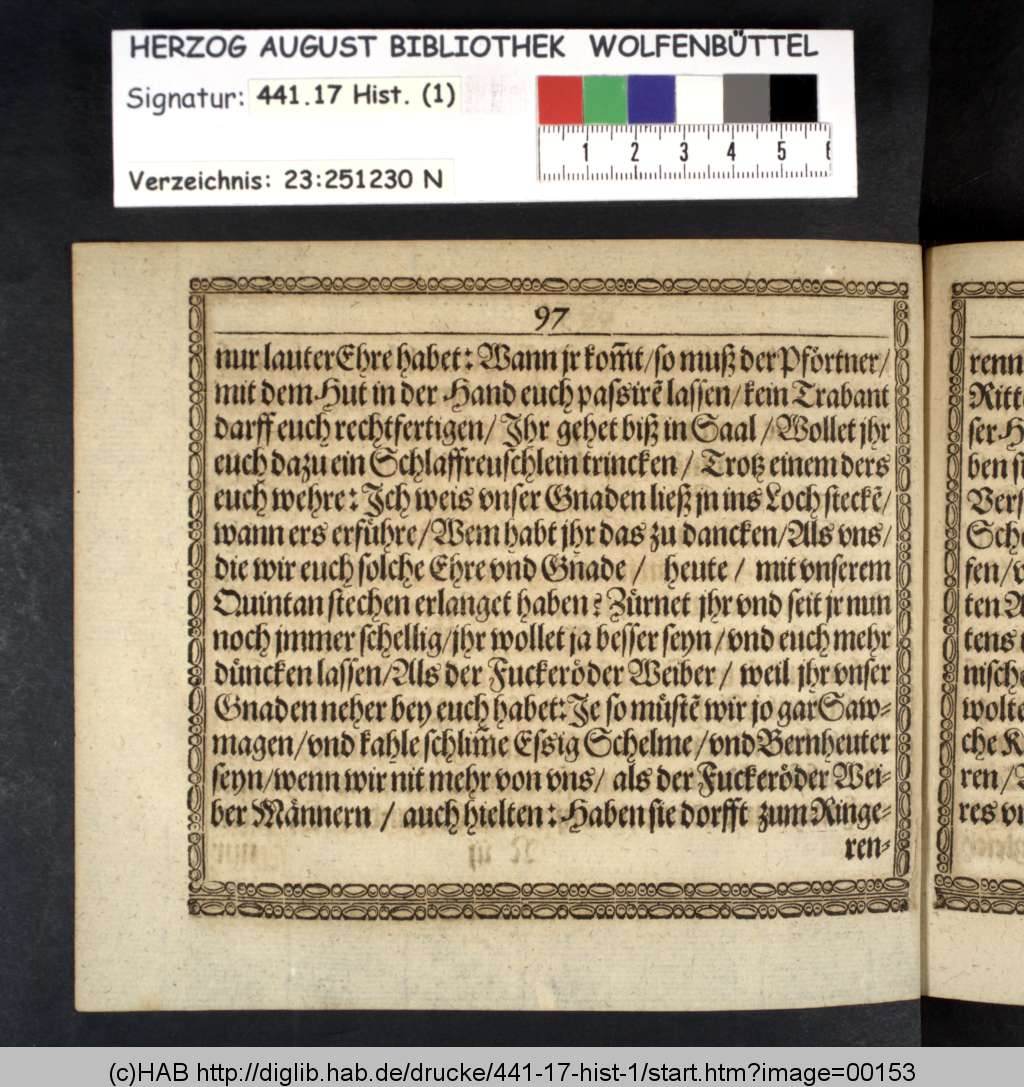 HERZOG AUGUST BIBLIOTHEK WOLFENBÜTTEL
Signatur: 441.17 Hist. (1)
1 2 3 4 5 6
Verzeichnis: 23:251230 N
97
nur lauter Ehre habet: Wann jr kom̃t/ so muß der Pförtner/
mit dem Hut in der Hand euch passirẽ lassen/ kein Trabant
darff euch rechtfertigen/ Ihr gehet biß in Saal/ Wollet jhr
euch dazu ein Schlaffreuschlein trincken/ Trotz einem ders
euch wehre: Ich weis vnser Gnaden ließ jn ins Loch steckẽ/
wann ers erführe/ Wem habt jhr das zu dancken/ Als vns/
die wir euch solche Ehre vnd Gnade/ heute/ mit vnserem
Quintan stechen erlanget haben? Zürnet jhr vnd seit jr nun
noch jmmer schellig/ jhr wollet ja besser seyn/ vnd euch mehr
düncken lassen/ Als der Fuckeröder Weiber/ weil jhr vnser
Gnaden neher bey euch habet: Je so müstẽ wir jo gar Saw-
magen/ vnd kahle schlim̃e Essig Schelme/ vnd Bernheuter
seyn/ wenn wir nit mehr von vns/ als der Fuckeröder Wei-
ber Männern/ auch hielten: Haben sie dorfft zum Ringe-
ren-
renn
Ritt
ser-H
ben s
Vers
Sche
fen/ v
ten A
tens
nische
wolte
che K
ren/
res v
(c)HAB http://diglib.hab.de/drucke/441-17-hist-1/start.htm?image=00153